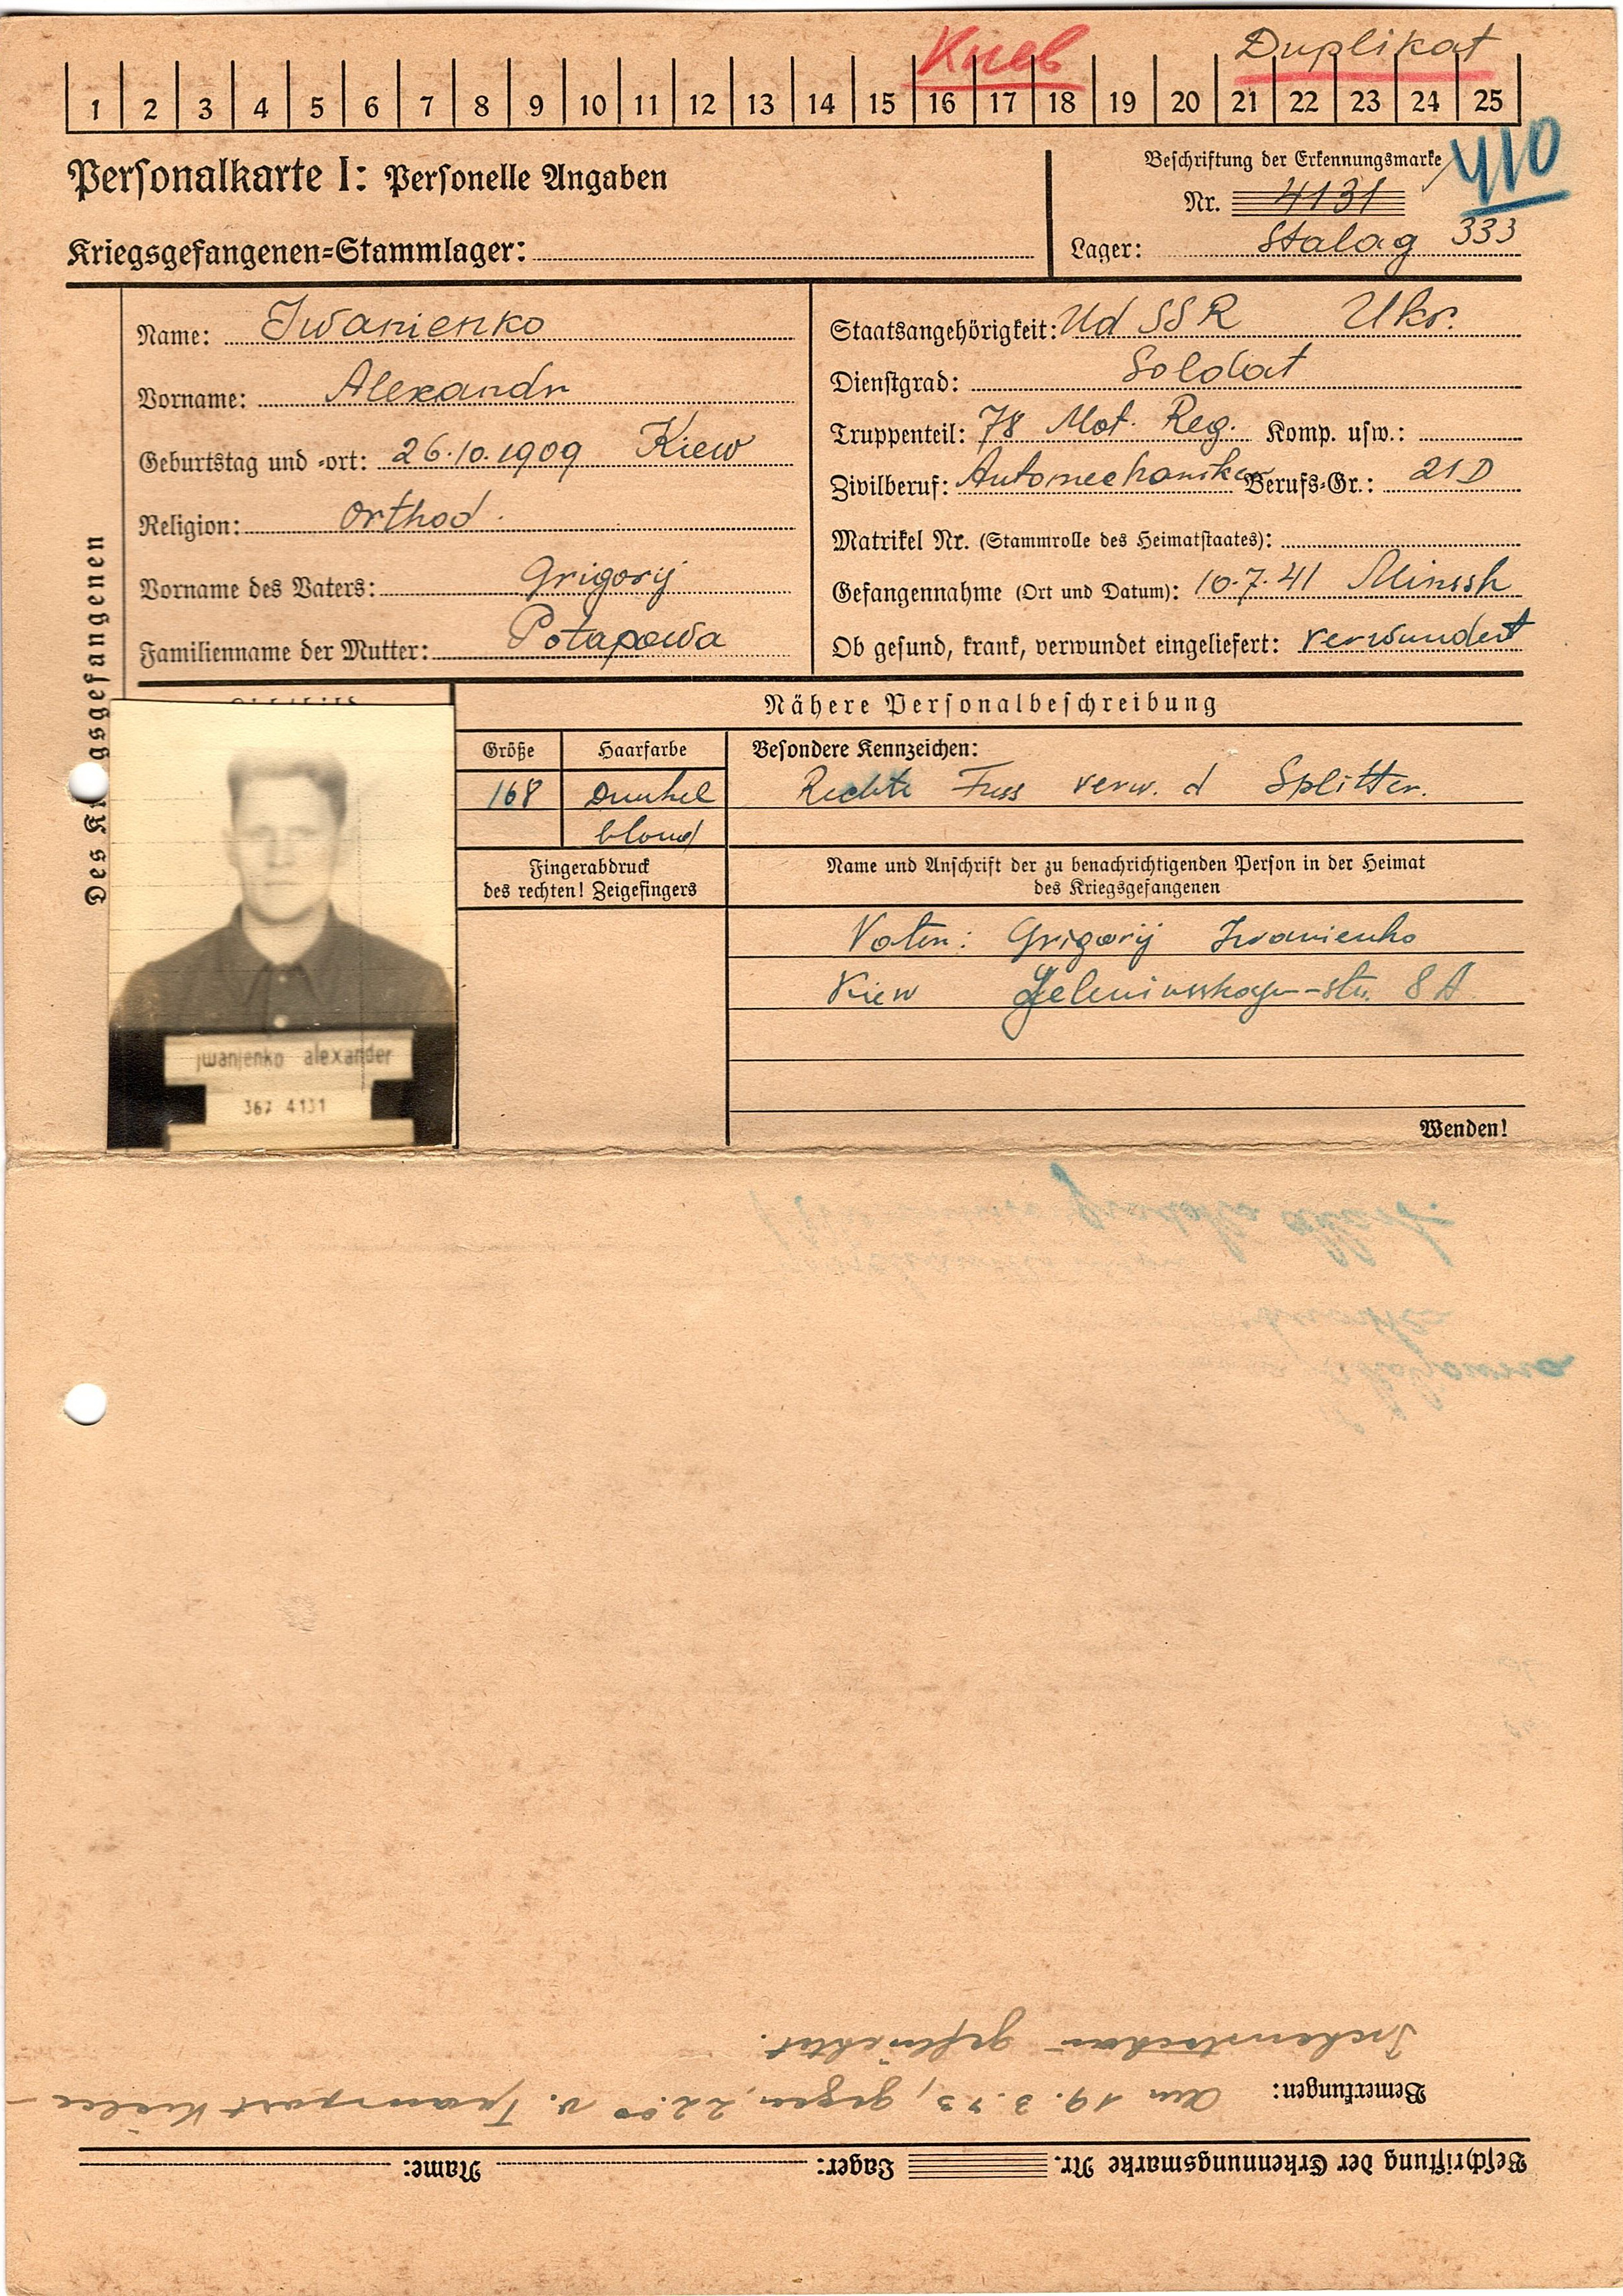 Киев Duplikat
1 2 3 4 5 6 7 8 9 10 11 12 13 14 15 16 17 18 19 20 21 22 23 24 25
Personalkarte I: Personelle Angaben
Beschriftung der Erkennungsmarke
410
Nr. 4131
Kriegsgefangenen-Stammlager:
Lager: Stalag 333
Des Kr gsgefangenen
Name: Iwanienko
Vorname: Alexandr
Geburtstag und -ort: 26.10.1909 Kiew
Religion: Orthod.
Vorname des Vaters: Grigorij
Familienname der Mutter: Potapowa
Staatsangehörigkeit: UdSSR Ukr.
Dienstgrad: Soldat
Truppenteil: 78 Mot. Reg. Komp. usw.:
Zivilberuf: Automechaniker Berufs-Gr.: 21D
Matrikel Nr. (Stammrolle des Heimatstaates):
Gefangennahme (Ort und Datum): 10.7.41 Minssk
Ob gesund, krank, verwundet eingeliefert: verwundet
Nähere Personalbeschreibung
Größe Haarfarbe
168 Dunkel
blond
Besondere Kennzeichen:
Rechte Fuss verw. d Splitter.
Fingerabdruck
des rechten! Zeigefingers
Name und Anschrift der zu benachrichtigenden Person in der Heimat
des Kriegsgefangenen
Grigorij Iwanienko
Kiew 8 A
jwanjenko alexander
367 4131
Wenden!
Beschriftung der Erkennungsmarke Nr. Lager: Name:
Bemerkungen: Am 19.3.43, gegen 22.00 v. Transport Kielce-
geflüchtet.